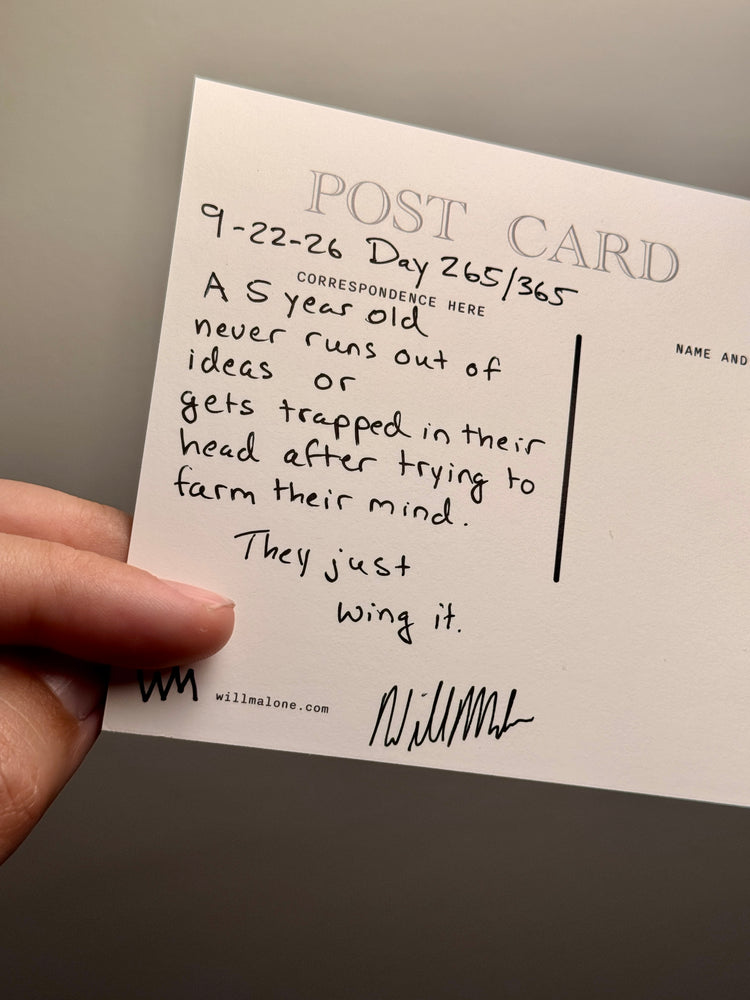 POST CARD
9-22-26 Day 265/365
CORRESPONDENCE HERE
A 5 year old
never runs out of
ideas or
gets trapped in their
head after trying to
farm their mind.
They just
wing it.
NAME AND
WM willmalone.com
Will Malone